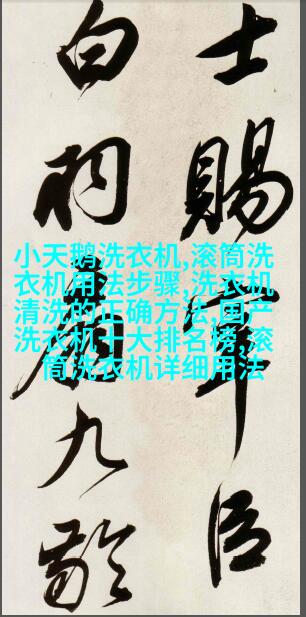 士賜宰臣
白羽扇九齡
小天鹅洗衣机,滚筒洗
衣机用法步骤,洗衣机
清洗的正确方法,国产
洗衣机十大排名榜,滚
筒洗衣机详细用法